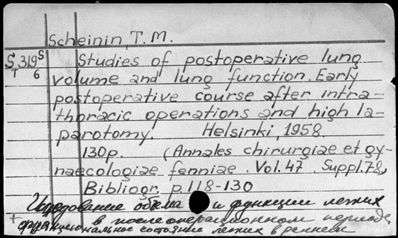 Scheinin, T. M.
S 319 S Studies of postoperative lung
T 6 volume and lung function. Early
postoperative course after intra-
thoracic operations and high la-
parotomy. Helsinki, 1958.
130p. (Annales chirurgiae et gy-
naecologiae fenniae. Vol. 47. Suppl. 78.
Bibliogr. p. 118-130
объема и функции легких
в послеоперационном периоде
функциональное состояние легких в раннем